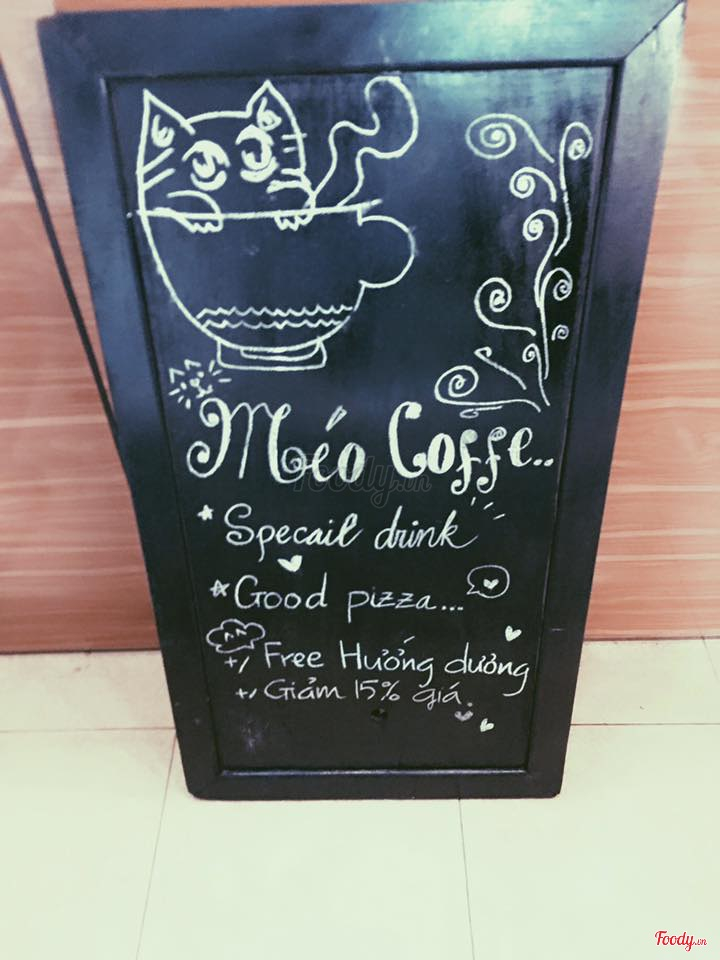 Méo Coffe..
Foody.vn
* Specail drink
* Good pizza...
^^
+/ Free Hướng dưỡng
+/ Giảm 15% giá.
Foody.vn